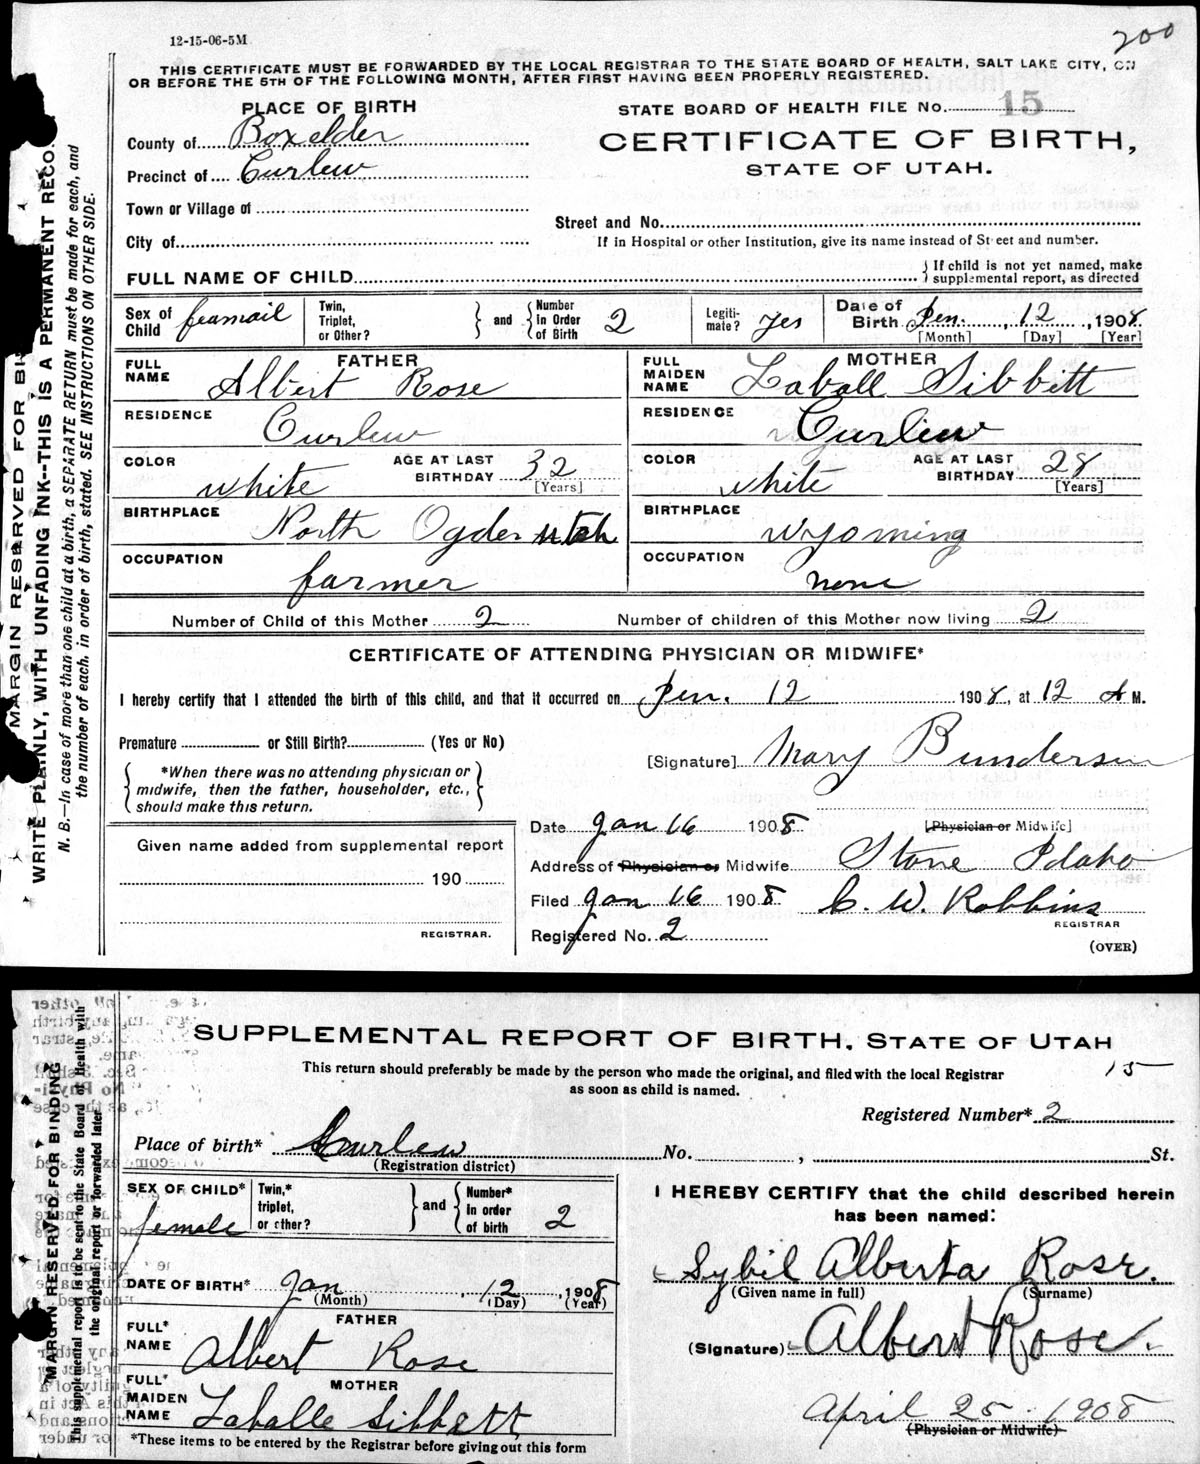 200
12-15-06-5M
THIS CERTIFICATE MUST BE FORWARDED BY THE LOCAL REGISTRAR TO THE STATE BOARD OF HEALTH, SALT LAKE CITY, ON
OR BEFORE THE 5TH OF THE FOLLOWING MONTH, AFTER FIRST HAVING BEEN PROPERLY REGISTERED.
PLACE OF BIRTH
STATE BOARD OF HEALTH FILE No. 15
County of Boxelder
CERTIFICATE OF BIRTH,
Precinct of Curlew
STATE OF UTAH.
Town or Village of
Street and No.
City of
If in Hospital or other Institution, give its name instead of Street and number.
FULL NAME OF CHILD
If child is not yet named, make supplemental report, as directed
Sex of Child feamail Twin, Triplet, or Other? and Number in Order of Birth 2 Legitimate? yes Date of Birth Jen. 12, 1908
[Month] [Day] [Year]
FATHER
FULL NAME Albert Rose
MOTHER
FULL MAIDEN NAME Laball Sibbitt
RESIDENCE Curlew
RESIDENCE Curlew
COLOR white AGE AT LAST BIRTHDAY 32 [Years]
COLOR white AGE AT LAST BIRTHDAY 28 [Years]
BIRTHPLACE North Ogden utah
BIRTHPLACE Wyoming
OCCUPATION farmer
OCCUPATION none
Number of Child of this Mother 2 Number of children of this Mother now living 2
CERTIFICATE OF ATTENDING PHYSICIAN OR MIDWIFE*
I hereby certify that I attended the birth of this child, and that it occurred on Jen. 12 1908, at 12 A M.
Premature or Still Birth? (Yes or No)
[Signature] Mary Bunderson
*When there was no attending physician or
midwife, then the father, householder, etc.,
should make this return.
Date Jan 16 1908 [Physician or Midwife]
Given name added from supplemental report
Address of Physician or Midwife Stone Idaho
190
Filed Jan 16 1908 C. W. Robbins
REGISTRAR
REGISTRAR.
Registered No. 2
(OVER)
MARGIN RESERVED FOR BI
WRITE PLAINLY, WITH UNFADING INK--THIS IS A PERMANENT RECO
N. B.--In case of more than one child at a birth, a SEPARATE RETURN must be made for each, and
the number of each, in order of birth, stated. SEE INSTRUCTIONS ON OTHER SIDE.
SUPPLEMENTAL REPORT OF BIRTH, STATE OF UTAH
This return should preferably be made by the person who made the original, and filed with the local Registrar
as soon as child is named.
15
Registered Number* 2
Place of birth* Curlew No. , St.
(Registration district)
SEX OF CHILD* female Twin,* triplet, or other? and Number* in order of birth 2
I HEREBY CERTIFY that the child described herein
has been named:
Sybil Alberta Rose.
(Given name in full) (Surname)
DATE OF BIRTH* Jan 12, 1908
(Month) (Day) (Year)
FATHER
FULL* NAME Albert Rose
(Signature) Albert Rose.
MOTHER
FULL* MAIDEN NAME Laballe Sibbett
April 25. 1908
(Physician or Midwife)
*These items to be entered by the Registrar before giving out this form
MARGIN RESERVED FOR BINDING
This supplemental report is to be sent to the State Board of Health with
the original report or forwarded later